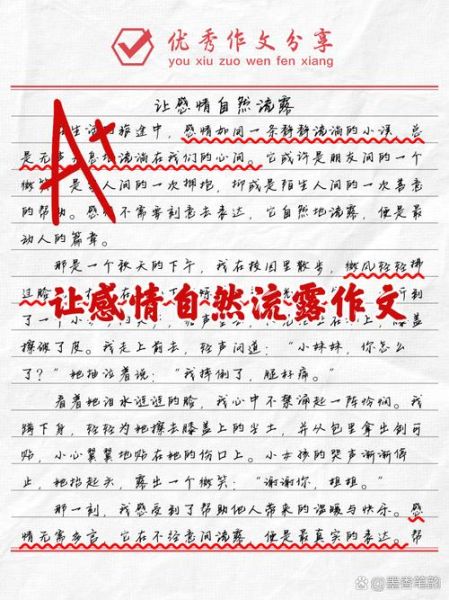 优秀作文分享
you xiu zuo wen fen xiang
让感情自然流露
A+
生活 旅途中，感情如同一条静静流淌的小溪，总
是无声 息地流淌在我们的心间。它或许是朋友间的一个
微笑，是 人间的一次拥抱，抑或是陌生人间的一次善意
的帮助。感 不需要刻意去表达，它自然地流露，便是最
动人的篇章。
那是一个秋天的下午，我在校园里散步，微风轻轻拂
过脸
让感情自然流露作文
到
了一个小 膝盖
擦破了皮。我走上前去，轻声问道：“小妹妹，你怎么
了？”她抽泣着说：“我摔倒了，腿好痛。”
看着她泪水涟涟的脸，我心中不禁涌起一阵怜悯。我
蹲下身，轻轻为她擦去膝盖上的尘土，并从包里拿出创可
贴，小心翼翼地贴在她的伤口上。小女孩的哭声渐渐停
止，她抬起头，露出一个微笑：“谢谢你，姐姐。”
那一刻，我感受到了帮助他人带来的温暖与快乐。感
情无需多言，它在不经意间流露，便是最真实的表达。帮
@墨香笔韵